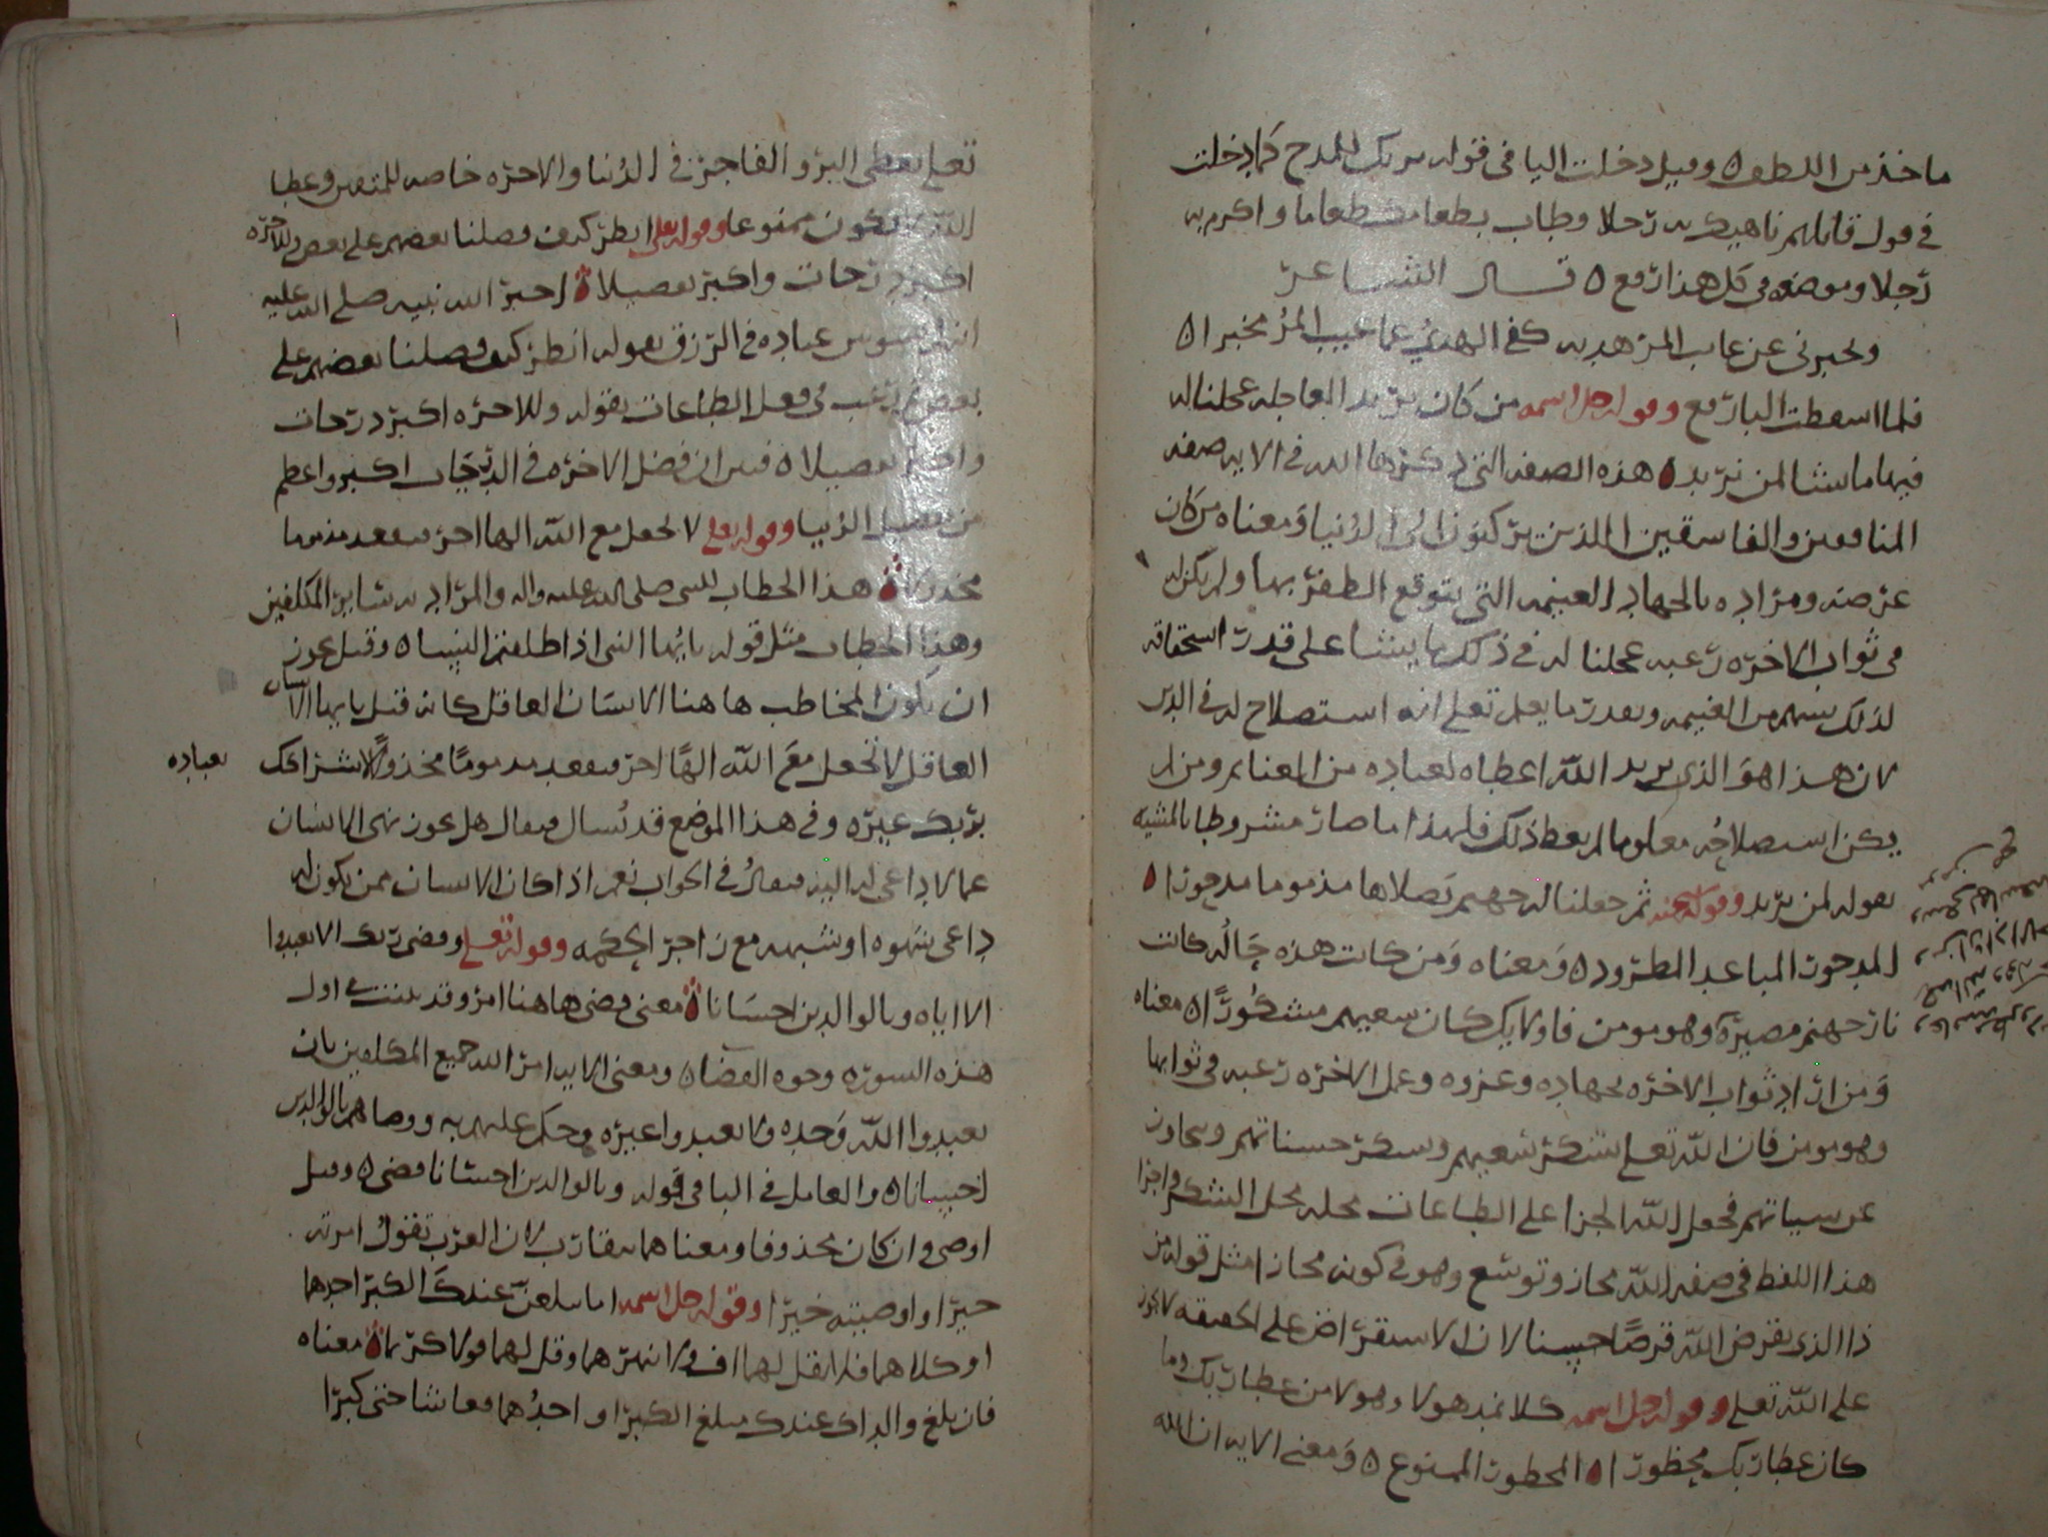 ماخذ من اللطف ه وقيل دخلت البا في قوله بربك للمدح كما دخلت
في قول قايلهم ناهيك به رجلا وطاب بطعامك طعاما واكرم به
رجلا وموضعه في كل هذا رفع ه قال الشاعر
ويخبرني عن غايب المرء هديه كفى الهدي عما غيب المرء مخبرا ه
فلما اسقطت البا رفع وقوله جل اسمه من كان يريد العاجله عجلنا له
فيها ما نشا لمن نريد ه هذه الصفه التي ذكرها الله في الايه صفه
المنافقين والفاسقين الذين يركنون الى الدنيا ومعناه من كان
غرضه ومراده بالجهاد الغنيمه التي يتوقع الظفر بها ولم يكن له
في ثواب الاخره رغبه عجلنا له في ذلك ما يشا على قدر استحقاقه
لذلك بسهم من الغنيمه وبقدر ما يعلم تعلى انه استصلاح له في الدين
لان هذا هو الذي يريد الله اعطاه لعباده من المغانم ومن لم
يكن استصلاحه معلوما لم يعط ذلك فلهذا ما صار مشروطا بالمشيه
بقوله لمن نريد وقوله ثم جعلنا له جهنم يصلاها مذموما مدحورا ه
المدحور المباعد المطرود ه ومعناه ومن كانت هذه حاله كانت
نار جهنم مصيره وهو مومن فاوليك كان سعيهم مشكورا ه معناه
ومن اراد ثواب الاخره بجهاده وغزوه وعمل الاخره رغبه في ثوابها
وهو مومن فان الله تعلى يشكر سعيهم ويشكر حسناتهم ويتجاوز
عن سياتهم فجعل الله الجزا على الطاعات محله محل الشكر واجرا
هذا اللفظ في صفه الله مجاز وتوسع وهو في كونه مجازا مثل قوله من
ذا الذي يقرض الله قرضا حسنا لان الاستقراض على الحقيقه لا يجوز
على الله تعلى وقوله جل اسمه كلا نمد هولا وهولا من عطا ربك وما
كان عطا ربك محظورا ه المحظور الممنوع ه ومعنى الايه ان الله
تعلى يعطي البر والفاجر في الدنيا والاخره خاصه للمتقين وعطا
الله لا يكون ممنوعا وقوله تعلى انظر كيف فضلنا بعضهم على بعض وللاخره
اكبر درجات واكبر تفضيلا ه اخبر الله نبيه صلى الله عليه
عباده في الرزق بقوله انظر كيف فضلنا بعضهم على
بعض ثم رغب في فعل الطاعات بقوله وللاخره اكبر درجات
واكبر تفضيلا ه فبين ان فضل الاخره في الدرجات اكبر واعظم
من تفضيل الدنيا وقوله تعلى لا تجعل مع الله الها اخر فتقعد مذموما
مخذولا ه هذا الخطاب للنبي صلى الله عليه واله والمراد به ساير المكلفين
وهذا الخطاب مثل قوله يايها النبي اذا طلقتم النسا ه وقيل يجوز
ان يكون المخاطب هاهنا الانسان العاقل كانه قيل يا يها الانسان
العاقل لا تجعل مع الله الها اخر فتقعد مذموما مخذولا لاشراكك
بعباده
بربك غيره وفي هذا الموضع قد نسال فيقال هل يجوز نهي الانسان
عما لا داعي له اليه فيقال في الجواب نعم اذا كان الانسان ممن يكون له
داعي شهوه او شبهه مع زاجر الحكمه وقوله تعلى وقضى ربك الا تعبدوا
الا اياه وبالوالدين احسانا ه معنى قضى هاهنا امر وقد بينت في اول
هذه السوره وجوه القضا ه ومعنى الايه امر الله جميع المكلفين بان
يعبدوا الله وحده ولا يعبدوا غيره وحكم عليهم به ووصاهم بالوالدين
احسانا ه والعامل في البا في قوله وبالوالدين احسانا قضى ه وقيل
اوصى وان كان محذوفا ومعناهما متقارب لان العرب تقول امرته
خيرا واوصيته خيرا وقوله جل اسمه اما يبلغن عندك الكبر احدهما
او كلاهما فلا تقل لهما اف ولا تنهرهما وقل لهما قولا كريما ه معناه
فان بلغ والداك عندك مبلغ الكبر او احدهما وعاشا حتى كبرا